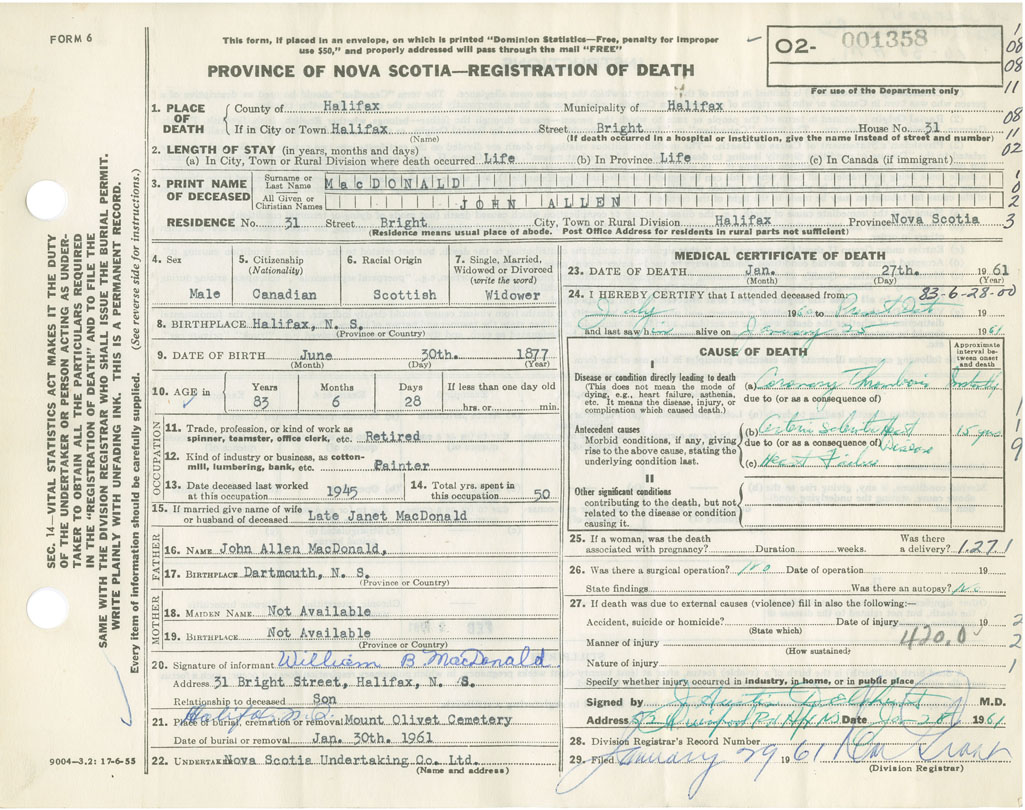 FORM 6
This form, if placed in an envelope, on which is printed "Dominion Statistics—Free, penalty for improper
use $50," and properly addressed will pass through the mail "FREE"
PROVINCE OF NOVA SCOTIA—REGISTRATION OF DEATH
02- 001358
For use of the Department only
1
08
08
11
08
11
02
1
0
2
3
1
1
9
2
2
1
SEC. 14—VITAL STATISTICS ACT MAKES IT THE DUTY
OF THE UNDERTAKER OR PERSON ACTING AS UNDER-
TAKER TO OBTAIN ALL THE PARTICULARS REQUIRED
IN THE "REGISTRATION OF DEATH" AND TO FILE THE
SAME WITH THE DIVISION REGISTRAR WHO SHALL ISSUE THE BURIAL PERMIT.
WRITE PLAINLY WITH UNFADING INK. THIS IS A PERMANENT RECORD.
Every item of information should be carefully supplied. (See reverse side for instructions.)
1. PLACE OF DEATH
County of Halifax Municipality of Halifax
If in City or Town Halifax Street Bright House No. 31
(Name) (If death occurred in a hospital or institution, give the name instead of street and number)
2. LENGTH OF STAY (in years, months and days)
(a) In City, Town or Rural Division where death occurred Life (b) In Province Life (c) In Canada (if immigrant)
3. PRINT NAME OF DECEASED
Surname or Last Name MacDONALD
All Given or Christian Names JOHN ALLEN
RESIDENCE No. 31 Street Bright City, Town or Rural Division Halifax Province Nova Scotia
(Residence means usual place of abode. Post Office Address for residents in rural parts not sufficient)
4. Sex
Male
5. Citizenship
(Nationality)
Canadian
6. Racial Origin
Scottish
7. Single, Married,
Widowed or Divorced
(write the word)
Widower
8. BIRTHPLACE Halifax, N. S.
(Province or Country)
9. DATE OF BIRTH June 30th. 1877
(Month) (Day) (Year)
10. AGE in Years Months Days If less than one day old
83 6 28 hrs. or min.
OCCUPATION
11. Trade, profession, or kind of work as
spinner, teamster, office clerk, etc. Retired
12. Kind of industry or business, as cotton-
mill, lumbering, bank, etc. Painter
13. Date deceased last worked
at this occupation 1945
14. Total yrs. spent in
this occupation 50
15. If married give name of wife
or husband of deceased Late Janet MacDonald
FATHER
16. NAME John Allen MacDonald,
17. BIRTHPLACE Dartmouth, N. S.
(Province or Country)
MOTHER
18. MAIDEN NAME Not Available
19. BIRTHPLACE Not Available
(Province or Country)
20. Signature of informant William B MacDonald
Address 31 Bright Street, Halifax, N. S.
Relationship to deceased Son
Halifax N.S.
21. Place of burial, cremation or removal Mount Olivet Cemetery
Date of burial or removal Jan. 30th. 1961
22. UNDERTAKER Nova Scotia Undertaking Co. Ltd.
(Name and address)
9004—3.2: 17-6-55
MEDICAL CERTIFICATE OF DEATH
23. DATE OF DEATH Jan. 27th. 1961
(Month) (Day) (Year)
24. I HEREBY CERTIFY that I attended deceased from: 83-6-28-00
July 1960 to Present Date 19
and last saw him alive on January 25 1961
CAUSE OF DEATH
Approximate
interval be-
tween onset
and death
I
Disease or condition directly leading to death
(This does not mean the mode of
dying, e.g., heart failure, asthenia,
etc. It means the disease, injury, or
complication which caused death.)
(a) Coronary Thrombosis
due to (or as a consequence of)
Antecedent causes
Morbid conditions, if any, giving
rise to the above cause, stating the
underlying condition last.
(b) Heart 15 yrs
due to (or as a consequence of) Disease
(c) Heart Failure
II
Other significant conditions
contributing to the death, but not
related to the disease or condition
causing it.
25. If a woman, was the death
associated with pregnancy? Duration weeks. Was there
a delivery? 1271
26. Was there a surgical operation? No Date of operation 19
State findings Was there an autopsy? No
27. If death was due to external causes (violence) fill in also the following:—
Accident, suicide or homicide? Date of injury 19
(State which)
Manner of injury 420.0
(How sustained)
Nature of injury
Specify whether injury occurred in industry, in home, or in public place
Signed by M.D.
Address Date Jan 28 1961
28. Division Registrar's Record Number
29. Filed January 29 1961
(Division Registrar)